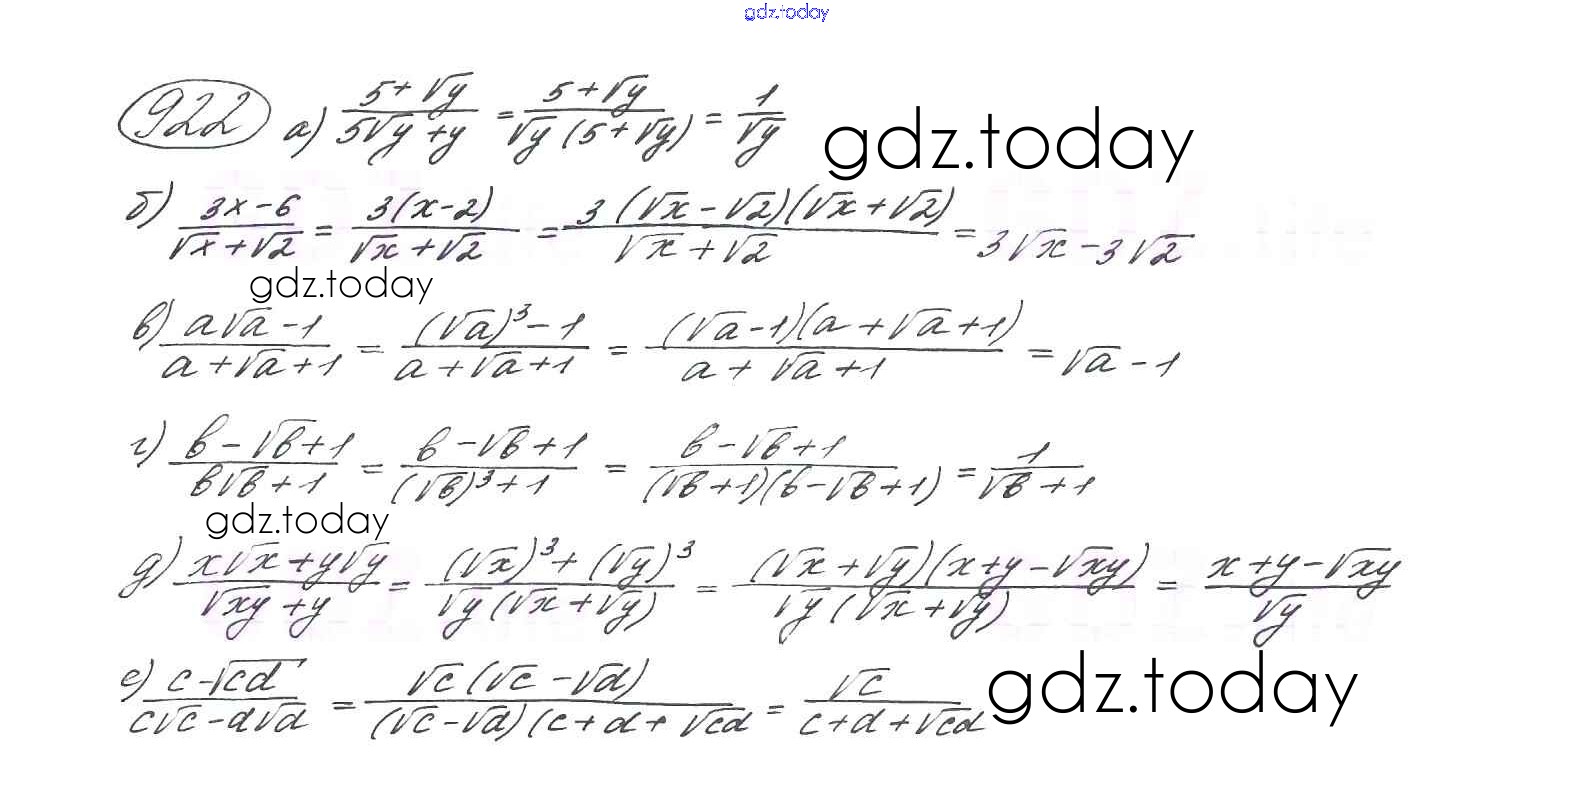 gdz.today
922 а) (5+√y)/(5√y+y) = (5+√y)/(√y(5+√y)) = 1/√y gdz.today
б) (3x-6)/(√x+√2) = 3(x-2)/(√x+√2) = 3(√x-√2)(√x+√2)/(√x+√2) = 3√x-3√2
gdz.today
в) (a√a-1)/(a+√a+1) = ((√a)³-1)/(a+√a+1) = (√a-1)(a+√a+1)/(a+√a+1) = √a-1
г) (b-√b+1)/(b√b+1) = (b-√b+1)/((√b)³+1) = (b-√b+1)/((√b+1)(b-√b+1)) = 1/(√b+1)
gdz.today
д) (x√x+y√y)/(√xy+y) = ((√x)³+(√y)³)/(√y(√x+√y)) = (√x+√y)(x+y-√xy)/(√y(√x+√y)) = (x+y-√xy)/√y
е) (c-√cd)/(c√c-d√d) = √c(√c-√d)/((√c-√d)(c+d+√cd) = √c/(c+d+√cd) gdz.today